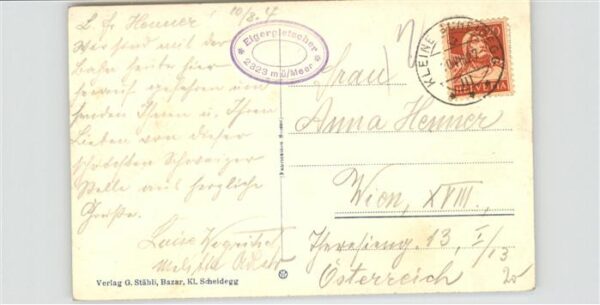 L. Fr. Henner! 10/8.
Wir sind mit der
Bahn heute hier
herauf gefahren und
senden Ihnen u. Ihren
Lieben von dieser
schönsten Schweizer
Stelle aus herzliche
Grüße.
Luise
Melitta
Verlag G. Stäbli, Bazar, Kl. Scheidegg
* Eigergletscher *
2323 m ü/Meer
KLEINE SCHEIDEGG
20
HELVETIA
Frau
Anna Henner
Wien, XVIII.
Theresieng. 13, I/13
Österreich
20